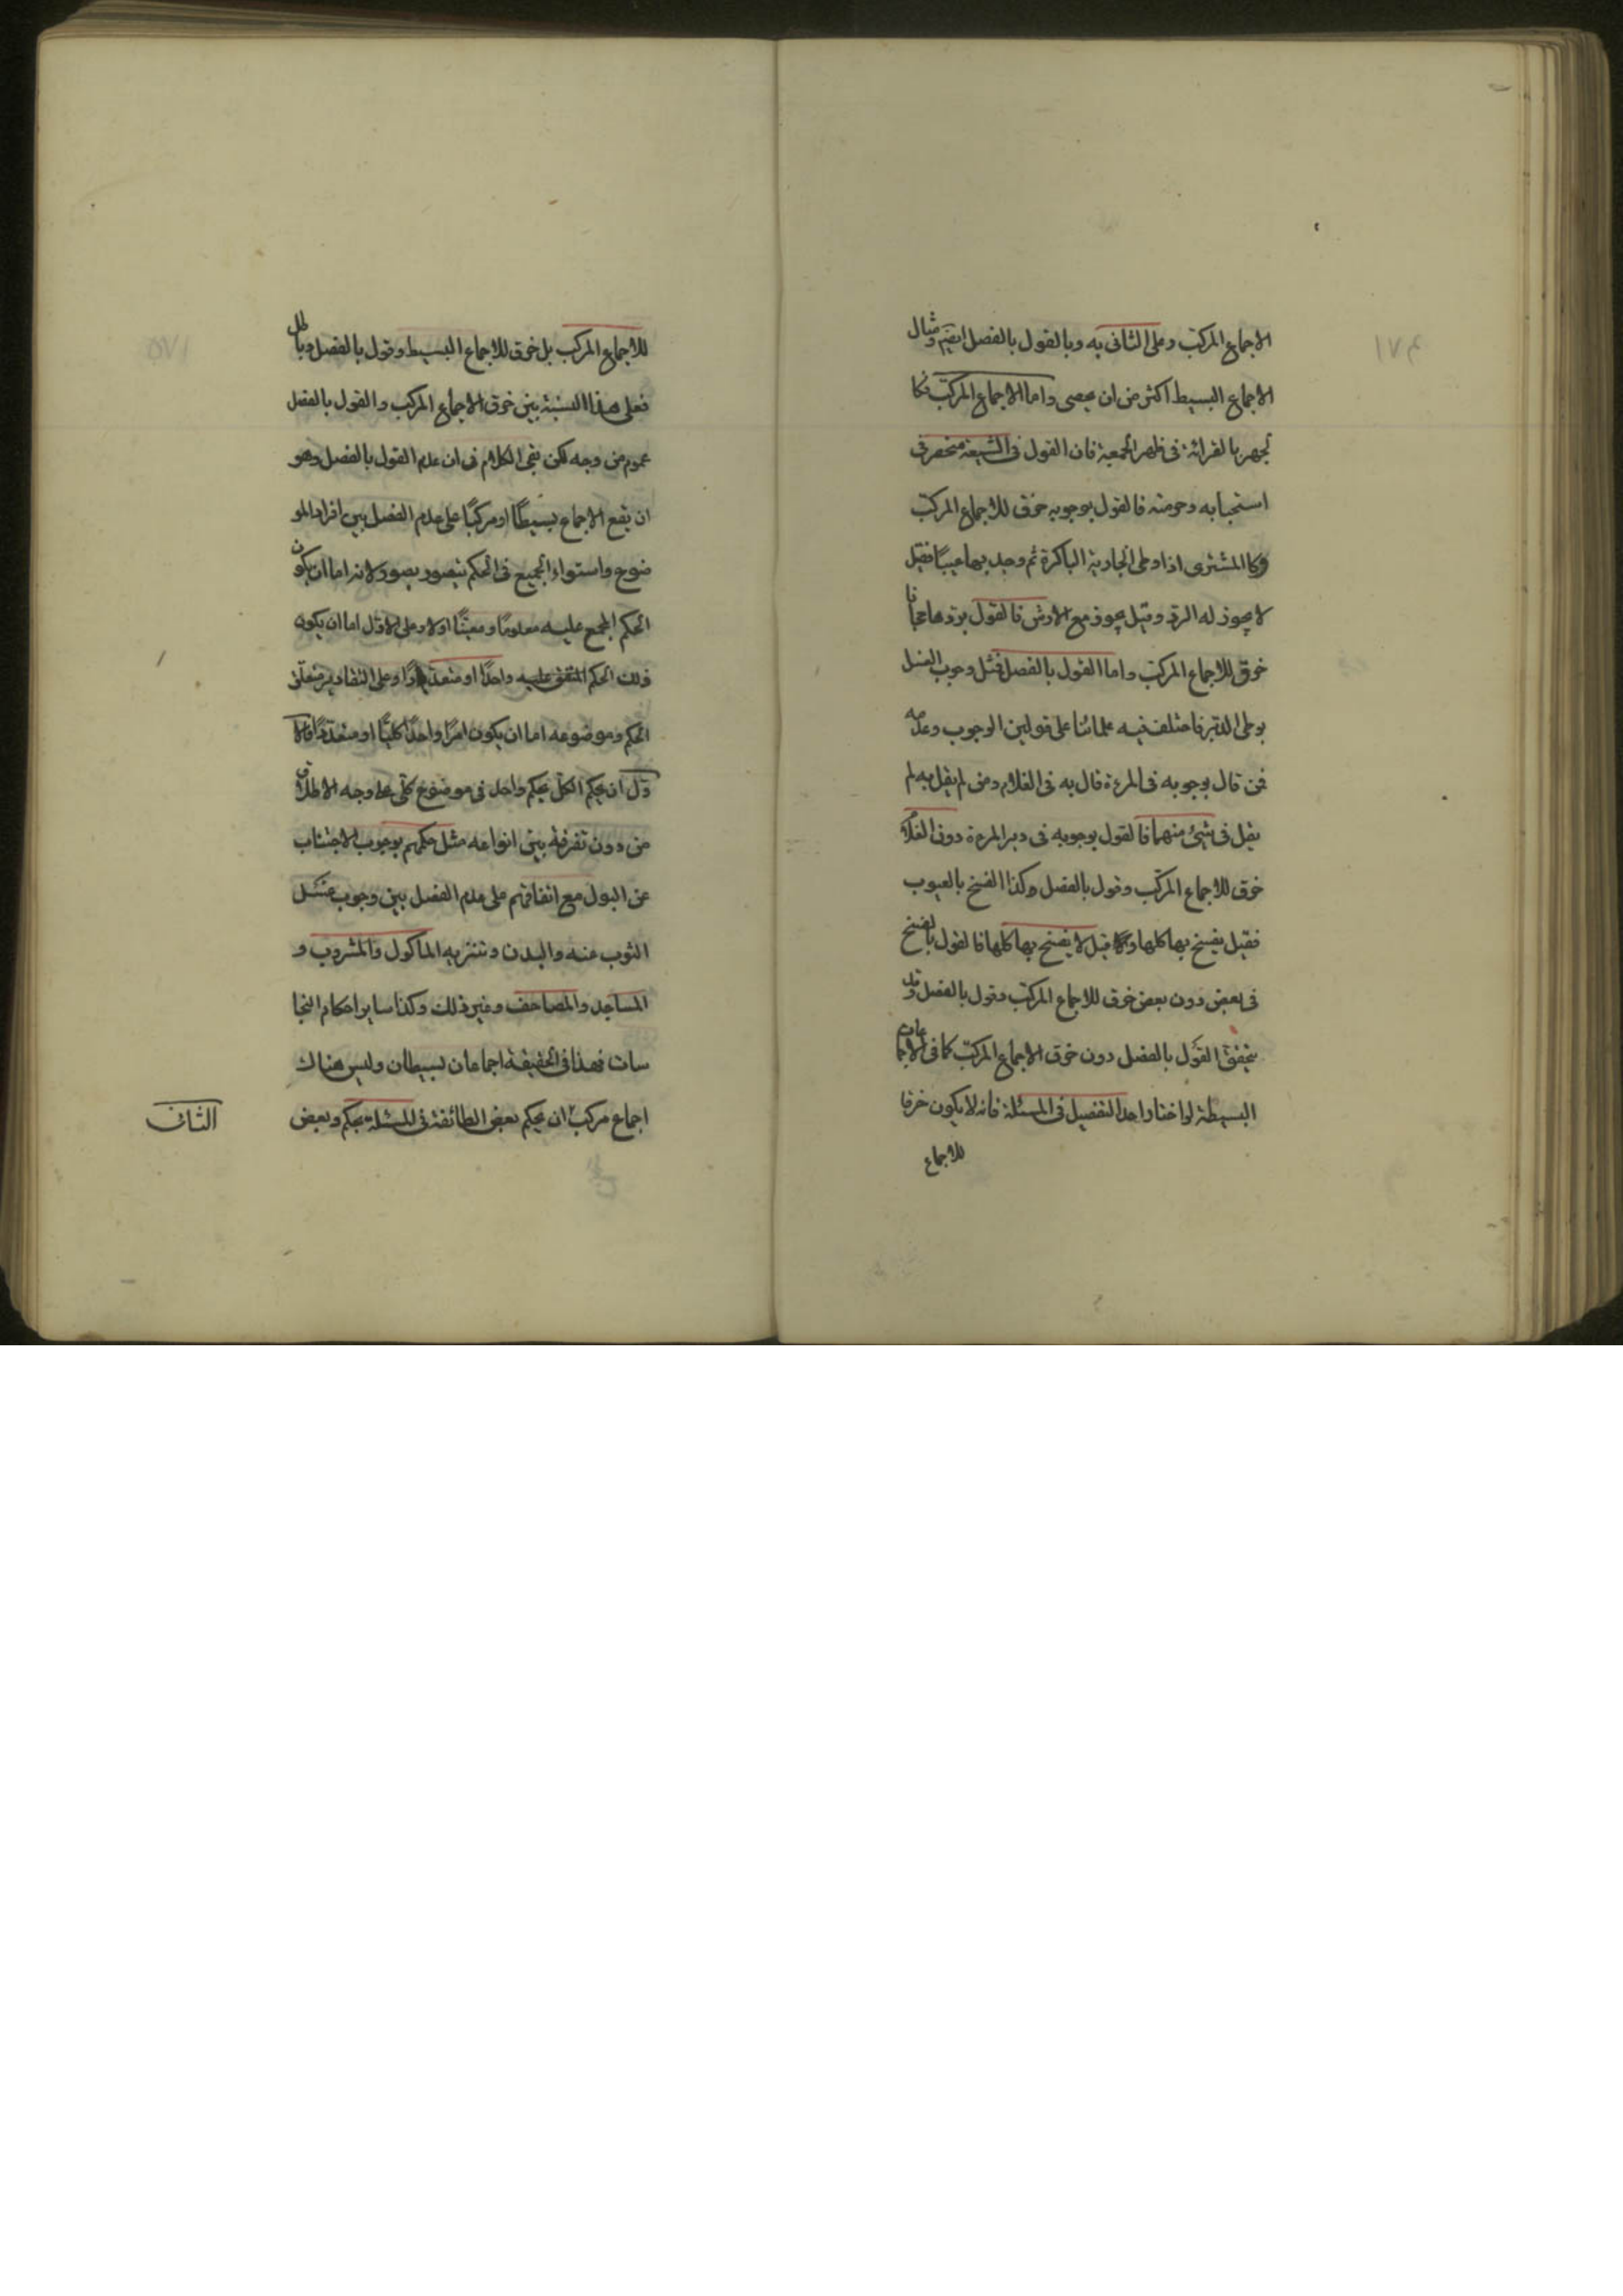 الاجماع المركب وعلى الثانى به وبالقول بالفصل ايضم ومثال
الاجماع البسيط اكثر من ان يحصى واما الاجماع المركب فكا
لجهر بالقرائة فى ظهر الجمعية فان القول فى الشيعة منحصر فى
استحبابه وحرمته فالقول بوجوبه خرق للاجماع المركب
وكالمشترى اذا وطى الجارية الباكرة ثم وجد بها عيبًا فقيل
لا يجوز له الرد وقيل يجوز مع الارش فالقول بردها مجانا
خرق للاجماع المركب واما القول بالفصل فمثل وجوب الغسل
بوطى الدبر فاختلف فيه علمائنا على قولين الوجوب وعدمه
فمن قال بوجوبه فى المرءة قال به فى الغلام ومن لم يقل به لم
يقل فى شيئ منهما فالقول بوجوبه فى دبر المرءة دون الغلام
خرق للاجماع المركب وقول بالفصل وكذا الفسخ بالعيوب
فقيل يفسخ بها كلها وقيل لا يفسخ بها كلها فالقول بالفسخ
فى بعض دون بعض خرق للاجماع المركب وقول بالفصل وقد
يتحقق القول بالفصل دون خرق الاجماع المركب كما فى الاجماعات
البسيطة لو اختار احد التفصيل فى المسئلة فانه لا يكون خرقا
للاجماع
١٧٤
للاجماع المركب بل خرق للاجماع البسيط وقول بالفصل وباطل
فعلى هذا النسبة بين خرق الاجماع المركب والقول بالفصل
عموم من وجه لكن بقى الكلام فى ان عدم القول بالفصل وهو
ان يقع الاجماع بسيطًا او مركبًا على عدم الفصل بين افراد المو
ضوع واستواء الجميع فى الحكم يتصور بصور لانه اما ان يكون
الحكم المجمع عليه معلومًا ومعينًا او لا وعلى الاول اما ان يكون
ذلك الحكم المتفق عليه واحدًا او متعددًا وعلى التقادير متعلق
الحكم وموضوعه اما ان يكون امرًا واحدًا كليًا او متعددًا فالا
ول ان يحكم الكل بحكم واحد فى موضوع كلى على وجه الاطلاق
من دون تفرقة بين انواعه مثل حكمهم بوجوب الاجتناب
عن البول مع اتفاقهم على عدم الفصل بين وجوب غسل
الثوب عنه والبدن وتنزيه الماكول والمشروب و
المساجد والمصاحف وغير ذلك وكذا ساير احكام النجا
سات فهذا فى الحقيقة اجماعان بسيطان وليس هناك
اجماع مركب ان يحكم بعض الطائفة فى المسئلة بحكم وبعض
الثانى
١٧٥